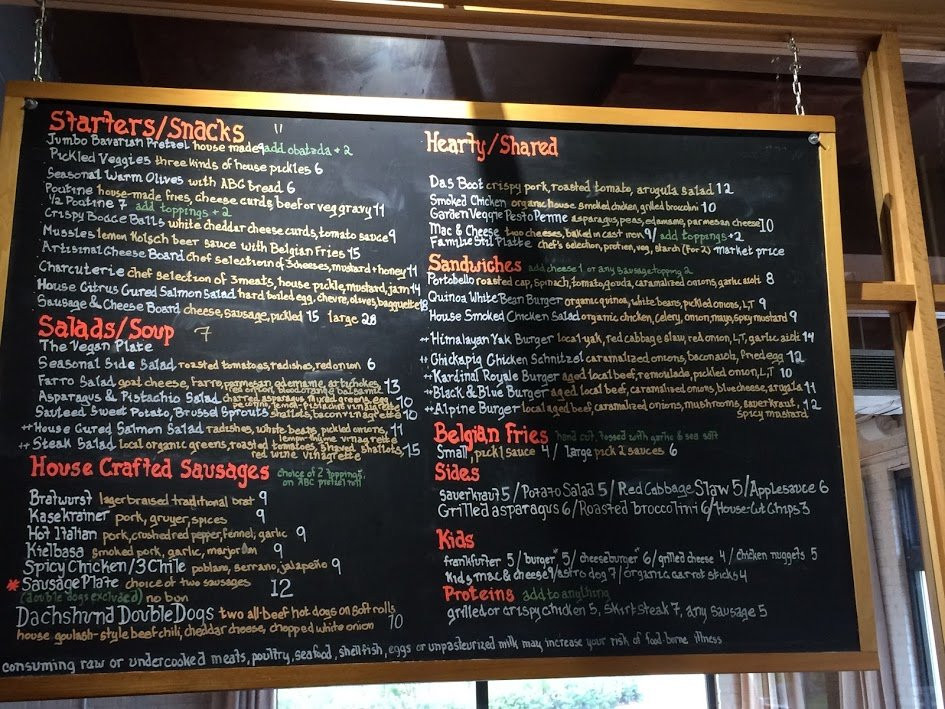 Starters/Snacks 11
Jumbo Bavarian Pretzel house made 9 add obatzda + 2
Pickled Veggies three kinds of house pickles 6
Seasonal Warm Olives with ABC bread 6
Poutine house-made fries, cheese curds, beef or veg gravy 11
1/2 Poutine 7 add toppings + 2
Crispy Bocce Balls white cheddar cheese curds, tomato sauce 9
Mussles lemon Kolsch beer sauce with Belgian Fries 15
Artisinal Cheese Board chef selection of 3 cheeses, mustard + honey 14
Charcuterie chef selection of 3 meats, house pickle, mustard, jam 14
House Citrus Cured Salmon Salad hard boiled egg, chevre, olives, baguette 18
Sausage & Cheese Board cheese, sausage, pickled 15 large 28
Salads/Soup 7
The Vegan Plate
Seasonal Side Salad roasted tomatoes, radishes, red onion 6
Farro Salad goat cheese, farro, parmesan, edemame, artichokes 13
Asparagus & Pistachio Salad charred asparagus, mixed greens, egg 10
Sauteed Sweet Potato, Brussel Sprouts shallots, bacon vinaigrette 10
** House Cured Salmon Salad radishes, white beans, pickled onions, 11
lemon-thyme vinaigrette
** Steak Salad local organic greens, roasted tomatoes, shaved shallots, 15
red wine vinaigrette
House Crafted Sausages choice of 2 toppings,
on ABC pretzel roll
Bratwurst lager braised traditional brat 9
Kasekrainer pork, gruyer, spices 9
Hot Italian pork, crushed red pepper, fennel, garlic 9
Kielbasa smoked pork, garlic, marjoram 9
Spicy Chicken/3 Chile poblano, serrano, jalapeño 9
* Sausage Plate choice of two sausages 12
(double dogs excluded) no bun
Dachshund Double Dogs two all-beef hot dogs on soft rolls 10
house goulash-style beef chili, cheddar cheese, chopped white onion
Hearty/Shared
Das Boot crispy pork, roasted tomato, arugula salad 12
Smoked Chicken organic house smoked chicken, grilled broccolini 10
Garden Veggie Pesto Penne asparagus, peas, edamame, parmesan cheese 10
Mac & Cheese two cheeses, baked in cast iron 9/ add toppings +2
Familie Stil Platte chefs selection, protien, veg, starch (For 2) market price
Sandwiches add cheese 1 or any sausage topping 2
Portobello roasted cap, spinach, tomato, gouda, caramelized onions, garlic aioli 8
Quinoa White Bean Burger organic quinoa, white beans, pickled onions, LT 9
House Smoked Chicken Salad organic chicken, celery, onion, mayo, spicy mustard 9
** Himalayan Yak Burger local yak, red cabbage slaw, red onion, LT, garlic aioli 14
** Chickapig Chicken Schnitzel caramelized onions, bacon aioli, fried egg 12
** Kardinal Royale Burger aged local beef, remoulade, pickled onion, L,T 10
** Black & Blue Burger aged local beef, caramelized onions, blue cheese, arugula 11
** Alpine Burger local aged beef, caramelized onions, mushrooms, sauerkraut, 12
spicy mustard
Belgian Fries hand cut, tossed with garlic & sea salt
Small, pick 1 sauce 4 / large pick 2 sauces 6
Sides
sauerkraut 5 / Potato Salad 5 / Red Cabbage Slaw 5 / Applesauce 6
Grilled asparagus 6 / Roasted broccolini 6 / House-Cut Chips 3
Kids
frankfurter 5 / burger* 5 / cheeseburger* 6 / grilled cheese 4 / chicken nuggets 5
Kids mac & cheese 4 / astro dog 7 / organic carrot sticks 4
Proteins add to anything
grilled or crispy chicken 5, skirt steak 7, any sausage 5
consuming raw or undercooked meats, poultry, seafood, shellfish, eggs or unpasteurized milk may increase your risk of food-borne illness